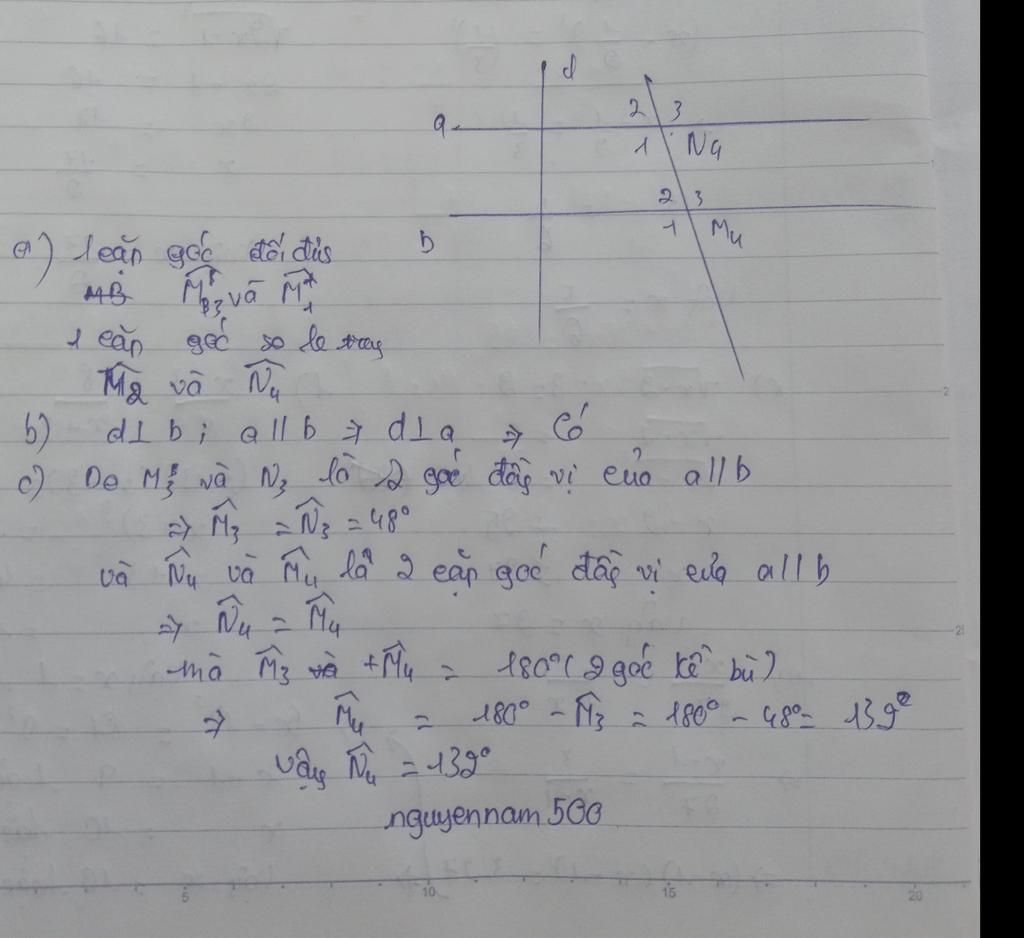 d
2 3
a
1 N4
2 3
b
1 M4
a) 1 cặp góc đối đỉnh
M̂3 và M̂1
1 cặp góc so le trong
M̂2 và N̂4
b) d⊥b ; a//b ⇒ d⊥a ⇒ Có
c) Do M̂3 và N̂3 là 2 góc đồng vị của a//b
⇒ M̂3 = N̂3 = 48°
và N̂4 và M̂4 là 2 cặp góc đồng vị của a//b
⇒ N̂4 = M̂4
mà M̂3 + M̂4 = 180° (2 góc kề bù)
⇒ M̂4 = 180° - M̂3 = 180° - 48° = 132°
vậy N̂4 = 132°
nguyennam500
5 10 15 20